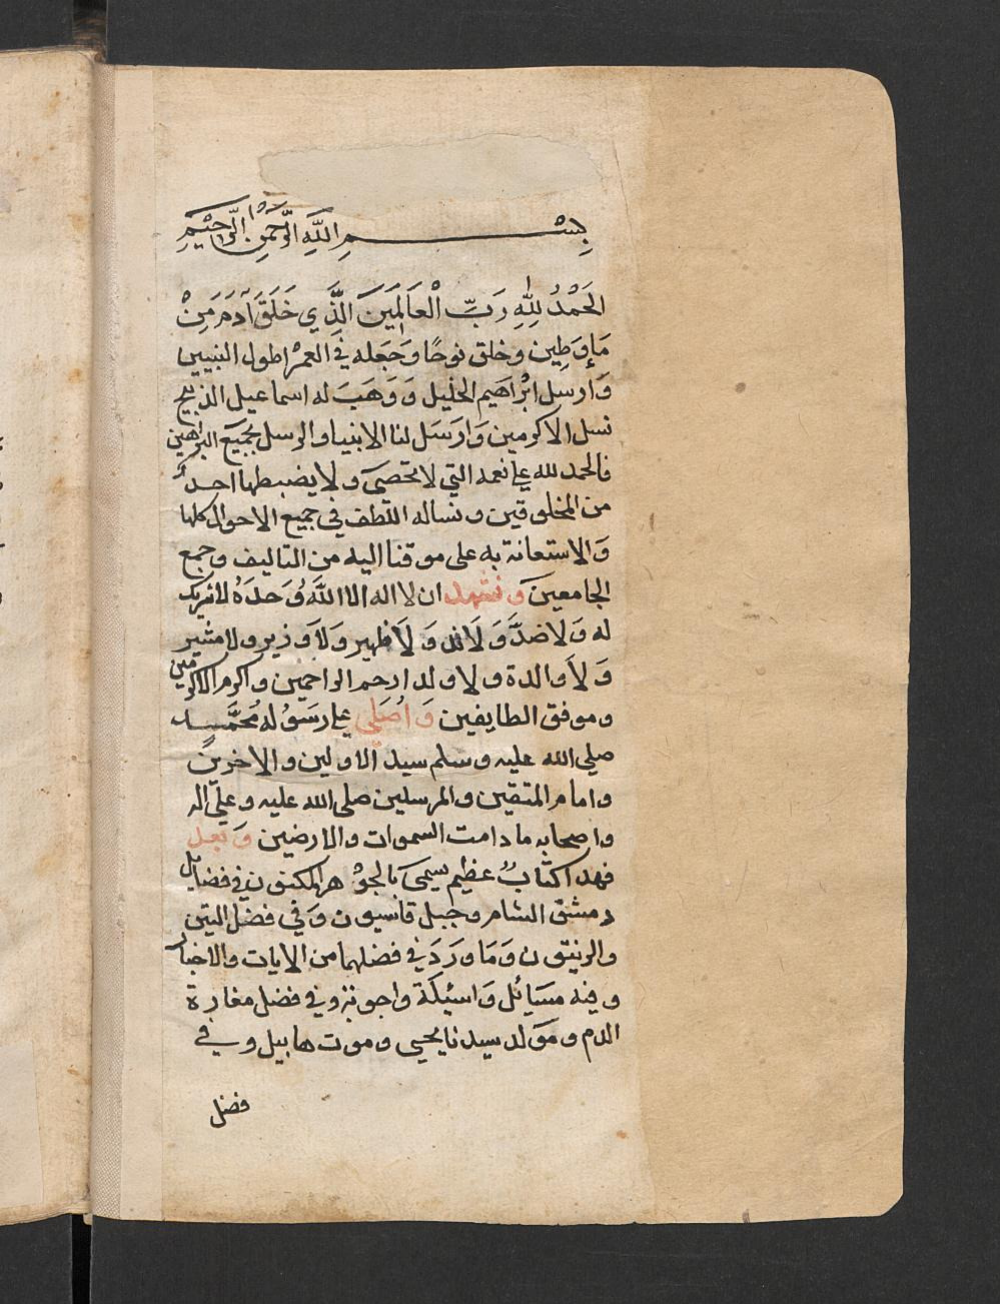 بِسْمِ اللَّهِ الرَّحْمٰنِ الرَّحِيْمِ
الحَمْدُ لِلّٰهِ رَبِّ الْعَالَمِيَن الَّذِي خَلَقَ آدَمَ مِنْ
مَاءٍ وَطِين وخلق نوحًا وَجَعَله في العمْر اطول النبيين
وَارسل ابْرَاهيم الخليل وَوَهَبَ له اسماعيل الذبيح
نسل الاكرمين وَارَسَل لنا الانبيا والرسل بجميَع البراهين
فالحمد لله على نعمه التي لا تحصَى ولا يضبطها احد
من المخلوقين ونساله اللطف في جميع الاحوال كلها
وَالاستعانة به على موقنا اليه من التاليف وجمع
الجامعين ونشهد ان لا اله الا اللهُ وَحدَهُ لا شريك
له وَلا ضدَّ وَلَا ند وَلَا ظهير وَلَا وزير ولا مشير
وَلَا والدة ولا ولد ارحم الراحمين واكرم الاكرمين
وموفق الطايفين وَاُصَلي على رسَوُله مُحمَّد
صلى الله عليه وسلم سيد الاولين والاخرين
وامام المتقين والمرسلين صلى الله عليه وعلى اله
واصحابه ما دامت السموات والارضين وَبعد
فهذا كتابٌ عظيم يسمى بالجوْهر المكنون في فضايل
دمشق الشام وجبل قاسيون وَفي فضل التين
والزيتون وَمَا ورَدَ في فضلهما من الايات والاخبار
وفيه مسَائل وَاسئلَة واجوبة وفي فضل مغارة
الدم ومَولد سيدنا يحيى وموت هابيل وفي
فضل